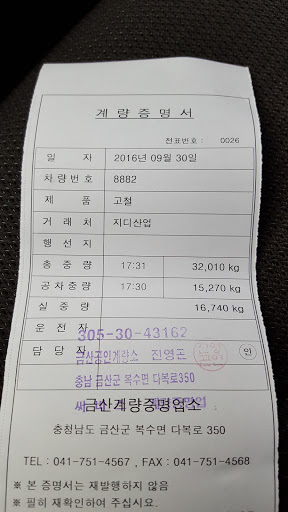 계 량 증 명 서
전표번호 : 0026
일 자 2016년 09월 30일
차 량 번 호 8882
제 품 고철
거 래 처 지디산업
행 선 지
총 중 량 17:31 32,010 kg
공 차 중 량 17:30 15,270 kg
실 중 량 16,740 kg
운 전 자
305-30-43162
담 당 자 인
금산공인계량소 진영돈
충남 금산군 복수면 다복로350
금산계량증명업소
충청남도 금산군 복수면 다복로 350
TEL : 041-751-4567 , FAX : 041-751-4568
※ 본 증명서는 재발행하지 않음
※ 필히 재확인하여 주십시요.